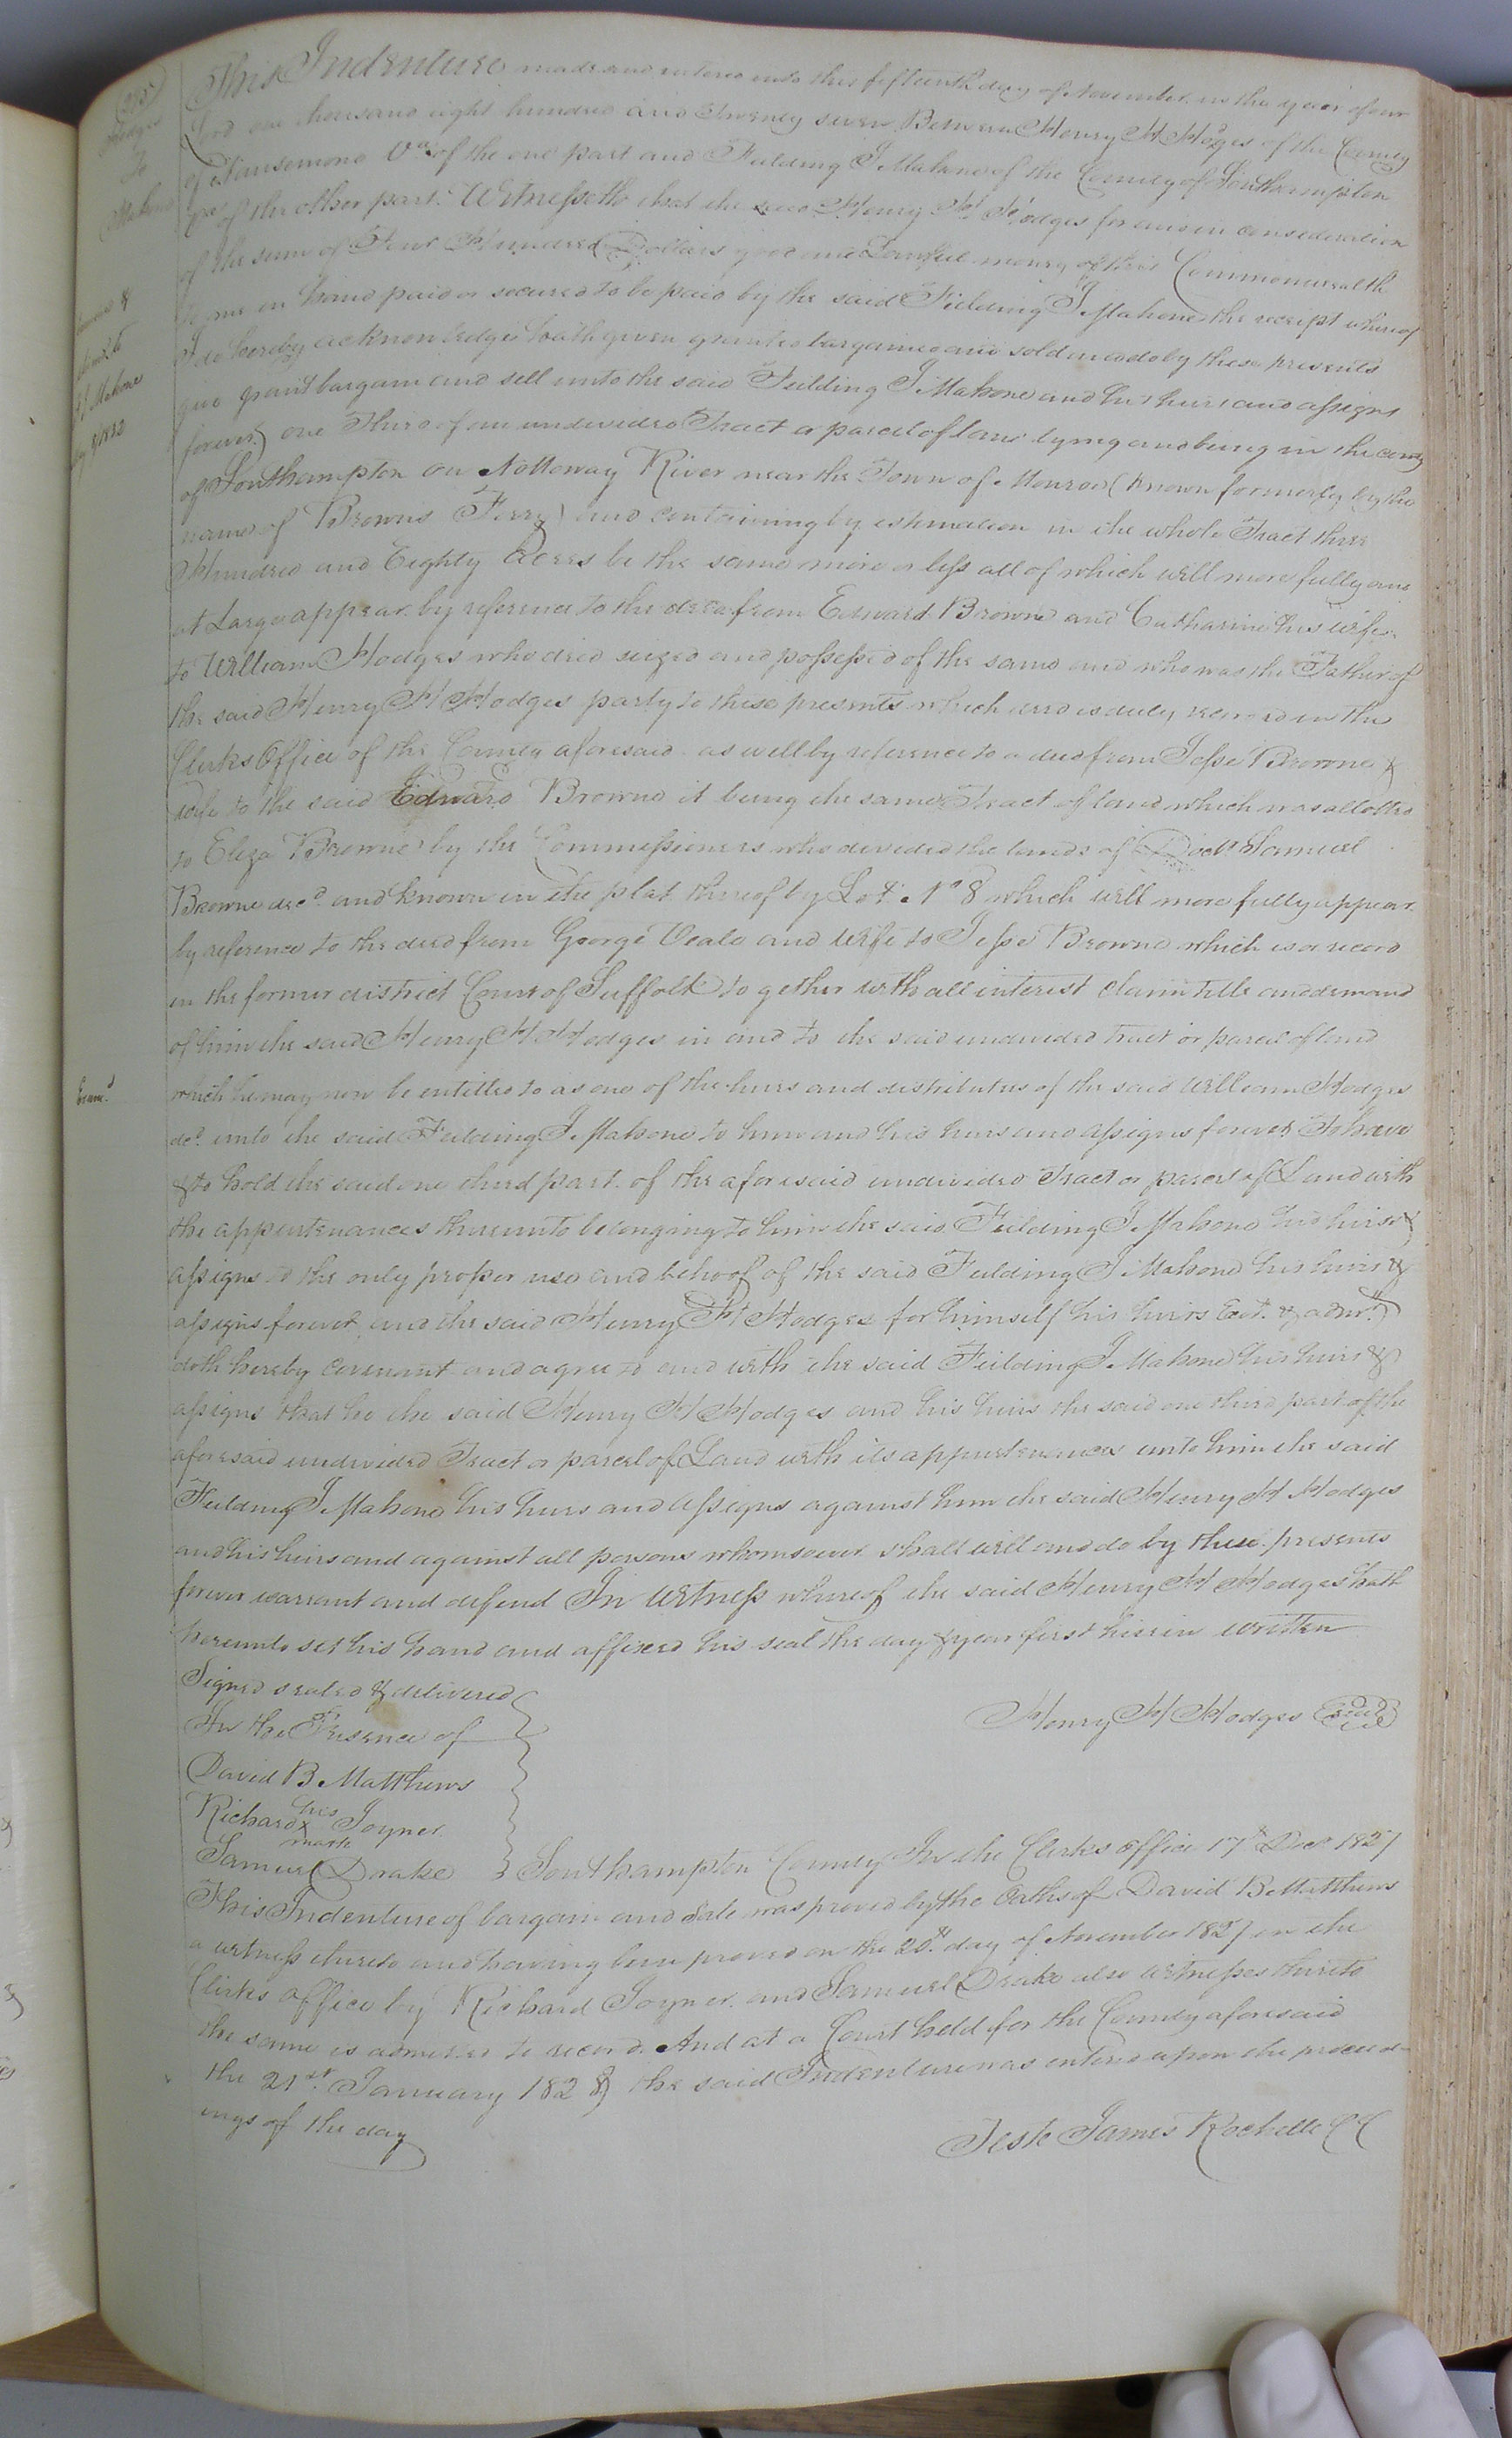 (215)
Hodges
To
Mahone
This Indenture made and entered into this fifteenth day of November in the year of our
Lord one thousand eight hundred and Twenty seven Between Henry H Hodges of the County
of Nansemond Va of the one part and Feilding J Mahone of the County of Southampton
of the other part. Witnesseth that the said Henry H Hodges for and in consideration
of the sum of Four Hundred Dollars good and Lawful money of this Commonwealth
to me in hand paid or secured to be paid by the said Feilding J Mahone the receipt whereof
I do hereby acknowledge hath given granted bargained and sold and do by these presents
give grant bargain and sell unto the said Feilding J Mahone and his heirs and assigns
forever) one Third of an undivided Tract or parcel of land lying and being in the county
of Southampton on Nottoway River near the Town of Monroe (known formerly by the
name of Browns Ferry) and containing by estimation in the whole Tract three
Hundred and Eighty Acres be the same more or less all of which will more fully and
at Large appear by reference to the deed from Edward Browne and Catharine his wife
to William Hodges who died seized and possessed of the same and who was the Father of
the said Henry H Hodges party to these presents which deed is duly recorded in the
Clerks Office of the County aforesaid as well by reference to a deed from Jesse Browne &
wife to the said Edward Browne it being the same Tract of land which was allotted
to Eliza Browne by the Commissioners who divided the lands of Doctr Samuel
Browne decd. and known in the plat thereof by Lot No 8 which will more fully appear
by reference to the deed from George Veale and wife to Jesse Browne which is on record
in the former district Court of Suffolk to gether with all interest claim title and demand
of him the said Henry H Hodges in and to the said undivided tract or parcel of land
which he may now be entitled to as one of the heirs and distributees of the said William Hodges
decd. unto the said Feilding J Mahone to him and his heirs and assigns forever To have
& to hold the said one third part of the aforesaid undivided Tract or parcel of Land with
the appurtenances thereunto belonging to him the said Feilding J Mahone his heirs &
assigns to the only proper use and behoof of the said Feilding J Mahone his heirs &
assigns forever and the said Henry H Hodges for himself his heirs Exrs. & admrs.
doth hereby covenant and agree to and with the said Feilding J Mahone his heirs &
assigns that he the said Henry H Hodges and his heirs the said one third part of the
aforesaid undivided Tract or parcel of Land with its appurtenances unto him the said
Feilding J Mahone his heirs and assigns against him the said Henry H Hodges
and his heirs and against all persons whomsoever shall will and do by these presents
forever warrant and defend In Witness whereof the said Henry H Hodges hath
hereunto set his hand and affixed his seal the day & year first herein written
Signed sealed & delivered
In the Presence of
Henry H Hodges Seal
David B Matthews
Richard his x mark Joyner
Samuel Drake
Southampton County In the Clerks Office 17th Decr 1827
This Indenture of bargain and Sale was proved by the Oaths of David B Matthews
a witness thereto and having been proved on the 20th. day of November 1827 in the
Clerks Office by Richard Joyner and Samuel Drake also witnesses thereto
the same is admitted to record. And at a Court held for the County aforesaid
the 21st. January 1828 the said Indenture was entered upon the proceed-
ings of the day
Teste James Rochelle CC
Mahone
Examd